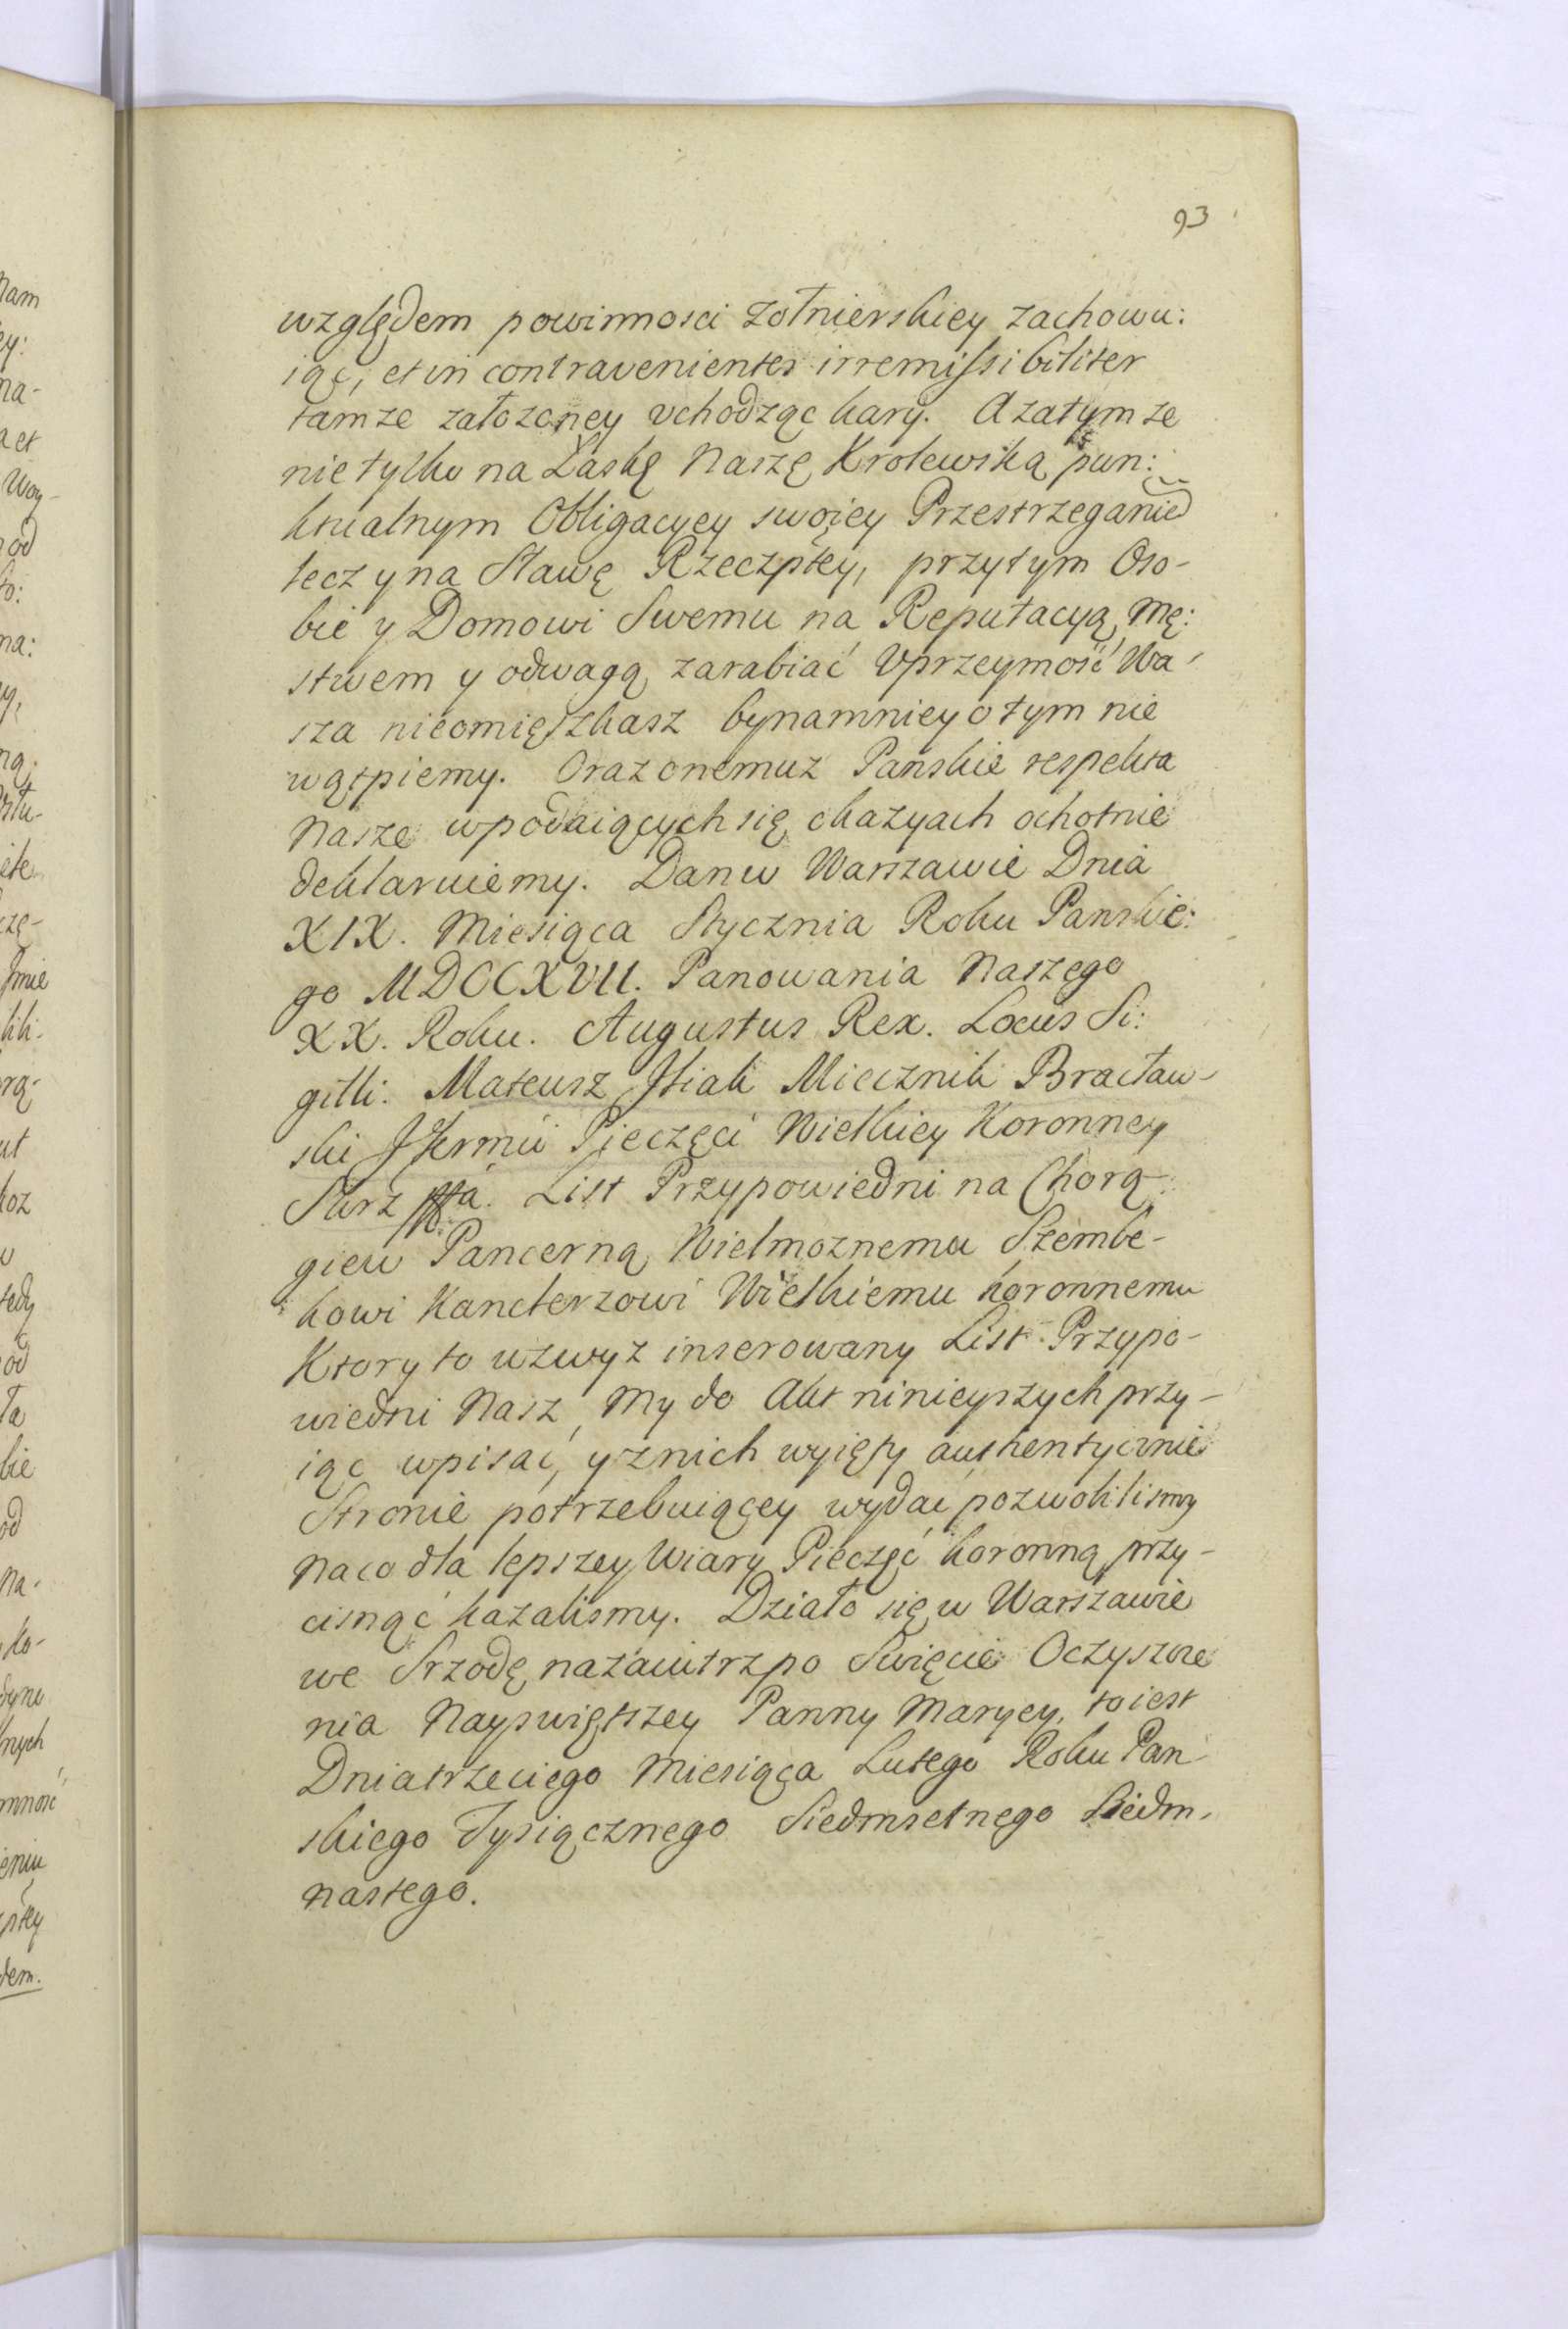 93
względem powinnosci zołnierskiey zachowu:
iąc, et in contravenientes irremissibiliter
tamze załozoney vchodząc kary. A zatym ze
nie tylko na Łaskę Naszę Krolewską pun:
ktualnym Obligacyey swoiey Przestrzeganie
lecz y na Sławę Rzeczpłey, przytym Oso-
bie y Domowi Swemu na Reputacyą Mę:
stwem y odwagą zarabiać Vprzeymość Wa-
sza nieomięszkasz bynamniey o tym nie
wątpiemy. Oraz onemuz Panskie respekta
Nasze w podaiących się okazyach ochotnie
deklaruiemy. Dan w Warszawie Dnia
XIX. Miesiąca Stycznia Roku Panskie:
go MDCCXVII. Panowania Naszego
XX. Roku. Augustus Rex. Locus Si:
gilli. Mateusz Miecznik Bracław-
ski Pieczęci Wielkiey Koronney
List Przypowiedni na Chorą-
giew Pancerną Wielmoznemu Szembe-
kowi Kanclerzowi Wielkiemu Koronnemu
Ktory to wzwyz inserowany List Przypo-
wiedni Nasz, My do Akt ninieyszych przy-
iąc wpisać, y znich wyięty authentycznie
Stronie potrzebuiącey wydac pozwolilismy
Na co dla lepszey Wiary Pieczęć koronną przy-
cisnąć kazalismy. Działo się w Warszawie
we Srzodę nazaiutrz po Swięcie Oczyszcze
nia Nayswiętszey Panny Maryey, to iest
Dnia trzeciego Miesiąca Lutego Roku Pan
skiego Tysiącznego Siedmsetnego Siedm-
nastego.